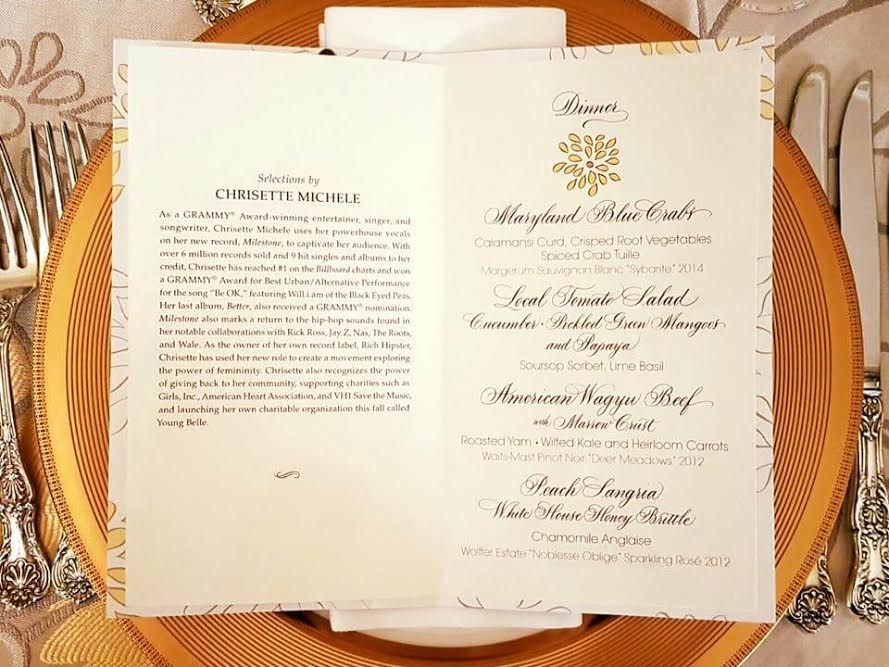 Selections by
CHRISETTE MICHELE
As a GRAMMY® Award-winning entertainer, singer, and
songwriter, Chrisette Michele uses her powerhouse vocals
on her new record, Milestone, to captivate her audience. With
over 6 million records sold and 9 hit singles and albums to her
credit, Chrisette has reached #1 on the Billboard charts and won
a GRAMMY® Award for Best Urban/Alternative Performance
for the song "Be OK," featuring Will.i.am of the Black Eyed Peas.
Her last album, Better, also received a GRAMMY® nomination.
Milestone also marks a return to the hip-hop sounds found in
her notable collaborations with Rick Ross, Jay Z, Nas, The Roots,
and Wale. As the owner of her own record label, Rich Hipster,
Chrisette has used her new role to create a movement exploring
the power of femininity. Chrisette also recognizes the power
of giving back to her community, supporting charities such as
Girls, Inc., American Heart Association, and VH1 Save the Music,
and launching her own charitable organization this fall called
Young Belle.
Dinner
Maryland Blue Crabs
Calamansi Curd, Crisped Root Vegetables
Spiced Crab Tuille
Margerum Sauvignon Blanc "Sybarite" 2014
Local Tomato Salad
Cucumber • Pickled Green Mangoes
and Papaya
Soursop Sorbet, Lime Basil
American Wagyu Beef
with Marrow Crust
Roasted Yam • Wilted Kale and Heirloom Carrots
Waits-Mast Pinot Noir "Deer Meadows" 2012
Peach Sangria
White House Honey Brittle
Chamomile Anglaise
Wölffer Estate "Noblesse Oblige" Sparkling Rosé 2012